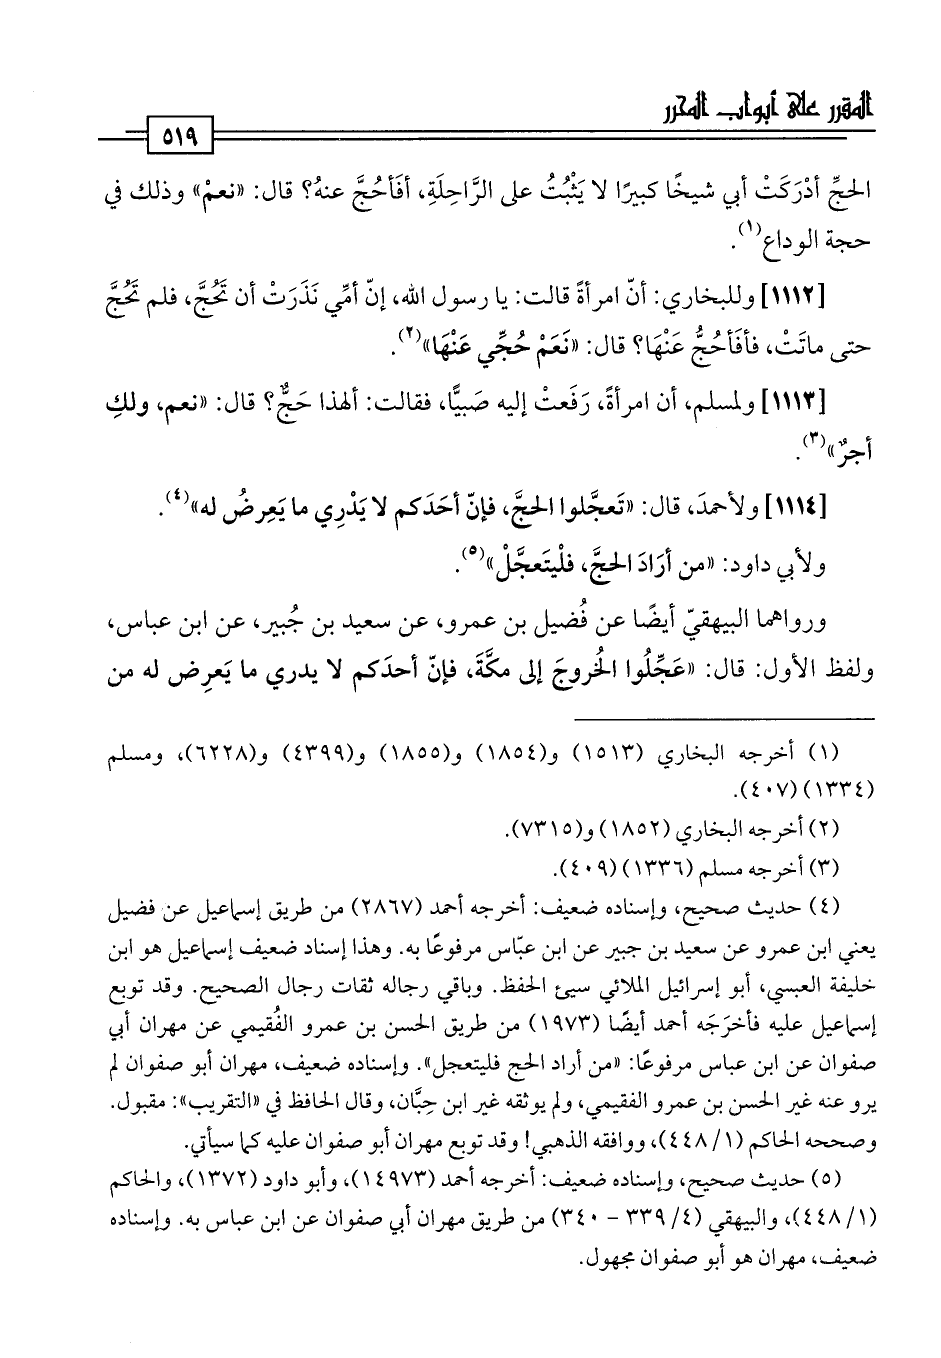 المقرر على أبواب المحرر
٥١٩
الحجِّ أدْرَكَتْ أبي شيخًا كبيرًا لا يَثْبُتُ على الرَّاحِلَةِ، أفَأحُجَّ عنهُ؟ قال: «نعمْ» وذلك في
حجة الوداع(١).
[١١١٢] وللبخاري: أنّ امرأةً قالت: يا رسول الله، إنّ أمِّي نَذَرَتْ أن تَحُجَّ، فلم تَحُجَّ
حتى ماتَتْ، فأفَأحُجُّ عَنْهَا؟ قال: «نَعَمْ حُجِّي عَنْهَا»(٢).
[١١١٣] ولمسلم، أن امرأةً، رَفَعتْ إليه صَبيًّا، فقالت: ألهذا حَجٌّ؟ قال: «نعم، ولكِ
أجرٌ»(٣).
[١١١٤] ولأحمدَ، قال: «تَعجَّلوا الحجَّ، فإنّ أحَدَكم لا يَدْرِي ما يَعرِضُ له»(٤).
ولأبي داود: «من أرَادَ الحجَّ، فلْيتَعجَّلْ»(٥).
ورواهما البيهقيّ أيضًا عن فُضيل بن عمرو، عن سعيد بن جُبير، عن ابن عباس،
ولفظ الأول: قال: «عَجِّلُوا الخُروجَ إلى مكَّةَ، فإنّ أحدَكم لا يدري ما يَعرِض له من
(١) أخرجه البخاري (١٥١٣) و(١٨٥٤) و(١٨٥٥) و(٤٣٩٩) و(٦٢٢٨)، ومسلم
(١٣٣٤) (٤٠٧).
(٢) أخرجه البخاري (١٨٥٢) و(٧٣١٥).
(٣) أخرجه مسلم (١٣٣٦) (٤٠٩).
(٤) حديث صحيح، وإسناده ضعيف: أخرجه أحمد (٢٨٦٧) من طريق إسماعيل عن فضيل
يعني ابن عمرو عن سعيد بن جبير عن ابن عبّاس مرفوعًا به. وهذا إسناد ضعيف إسماعيل هو ابن
خليفة العبسي، أبو إسرائيل الملائي سيئ الحفظ. وباقي رجاله ثقات رجال الصحيح. وقد توبع
إسماعيل عليه فأخرَجَه أحمد أيضًا (١٩٧٣) من طريق الحسن بن عمرو الفُقيمي عن مهران أبي
صفوان عن ابن عباس مرفوعًا: «من أراد الحج فليتعجل». وإسناده ضعيف، مهران أبو صفوان لم
يرو عنه غير الحسن بن عمرو الفقيمي، ولم يوثقه غير ابن حِبَّان، وقال الحافظ في «التقريب»: مقبول.
وصححه الحاكم (١/ ٤٤٨)، ووافقه الذهبي! وقد توبع مهران أبو صفوان عليه كما سيأتي.
(٥) حديث صحيح، وإسناده ضعيف: أخرجه أحمد (١٤٩٧٣)، وأبو داود (١٣٧٢)، والحاكم
(١/ ٤٤٨)، والبيهقي (٤/ ٣٣٩ - ٣٤٠) من طريق مهران أبي صفوان عن ابن عباس به. وإسناده
ضعيف، مهران هو أبو صفوان مجهول.